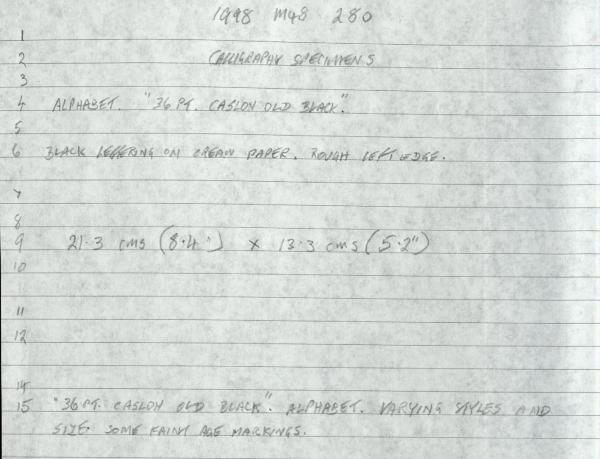 1998 M48 280
1
2 CALLIGRAPHY SPECIMENS
3
4 ALPHABET. "36 PT. CASLON OLD BLACK".
5
6 BLACK LETTERING ON CREAM PAPER. ROUGH LEFT EDGE.
7
8
9 21.3 cms (8.4") x 13.3 cms (5.2")
10
11
12
14
15 "36 PT. CASLON OLD BLACK". ALPHABET. VARYING STYLES AND
SIZE. SOME FAINT AGE MARKINGS.